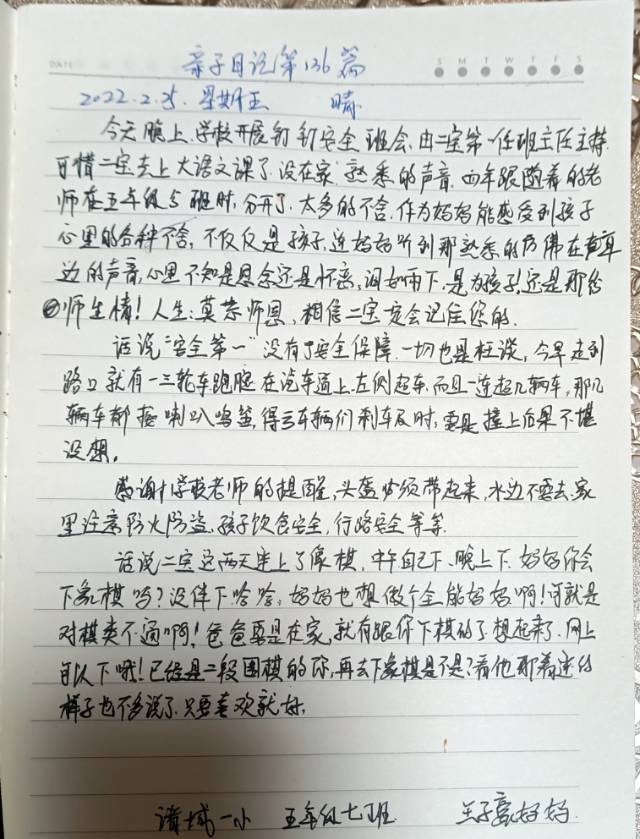 DATE
S M T W T F S
亲子日记第136篇
2022.2.25. 星期五 晴.
今天晚上,学校开展钉钉安全班会,由二宝第一任班主任主持.
可惜二宝去上大语文课了,没在家.熟悉的声音,四年跟随着的老
师在五年级5班时,分开了.太多的不舍,作为妈妈能感受到孩子
心里的各种不舍,不仅仅是孩子,连妈妈听到那熟悉的仿佛在耳
边的声音,心里不知是思念还是怀离,泪如雨下,是为孩子,还是那份
师生情!人生:莫苦师恩,相信二宝定会记住您的.
话说“安全第一”没有了安全保障,一切也是枉谈,今早走到
路口就有一三轮车跑腿在汽车道上,左侧超车,而且一连超几辆车,那几
辆车都按喇叭鸣笛,得亏车辆们刹车及时,要是撞上后果不堪
设想.
感谢学校老师的提醒,头盔必须带起来,水边不要去,家
里注意防火防盗,孩子饮食安全,行路安全等等.
话说二宝这两天迷上了象棋,中午自己下、晚上下.妈妈你会
下象棋吗?没伴下哈哈,妈妈也想做个全能妈妈啊!可就是
对棋类不通啊!爸爸要是在家,就有跟你下棋的了.想起来了,网上
可以下哦!已经是二段围棋的你,再去下象棋是不是?看他那着迷的
样子也不多说了,只要喜欢就好.
诸城一小 五年级七班 王子豪妈妈